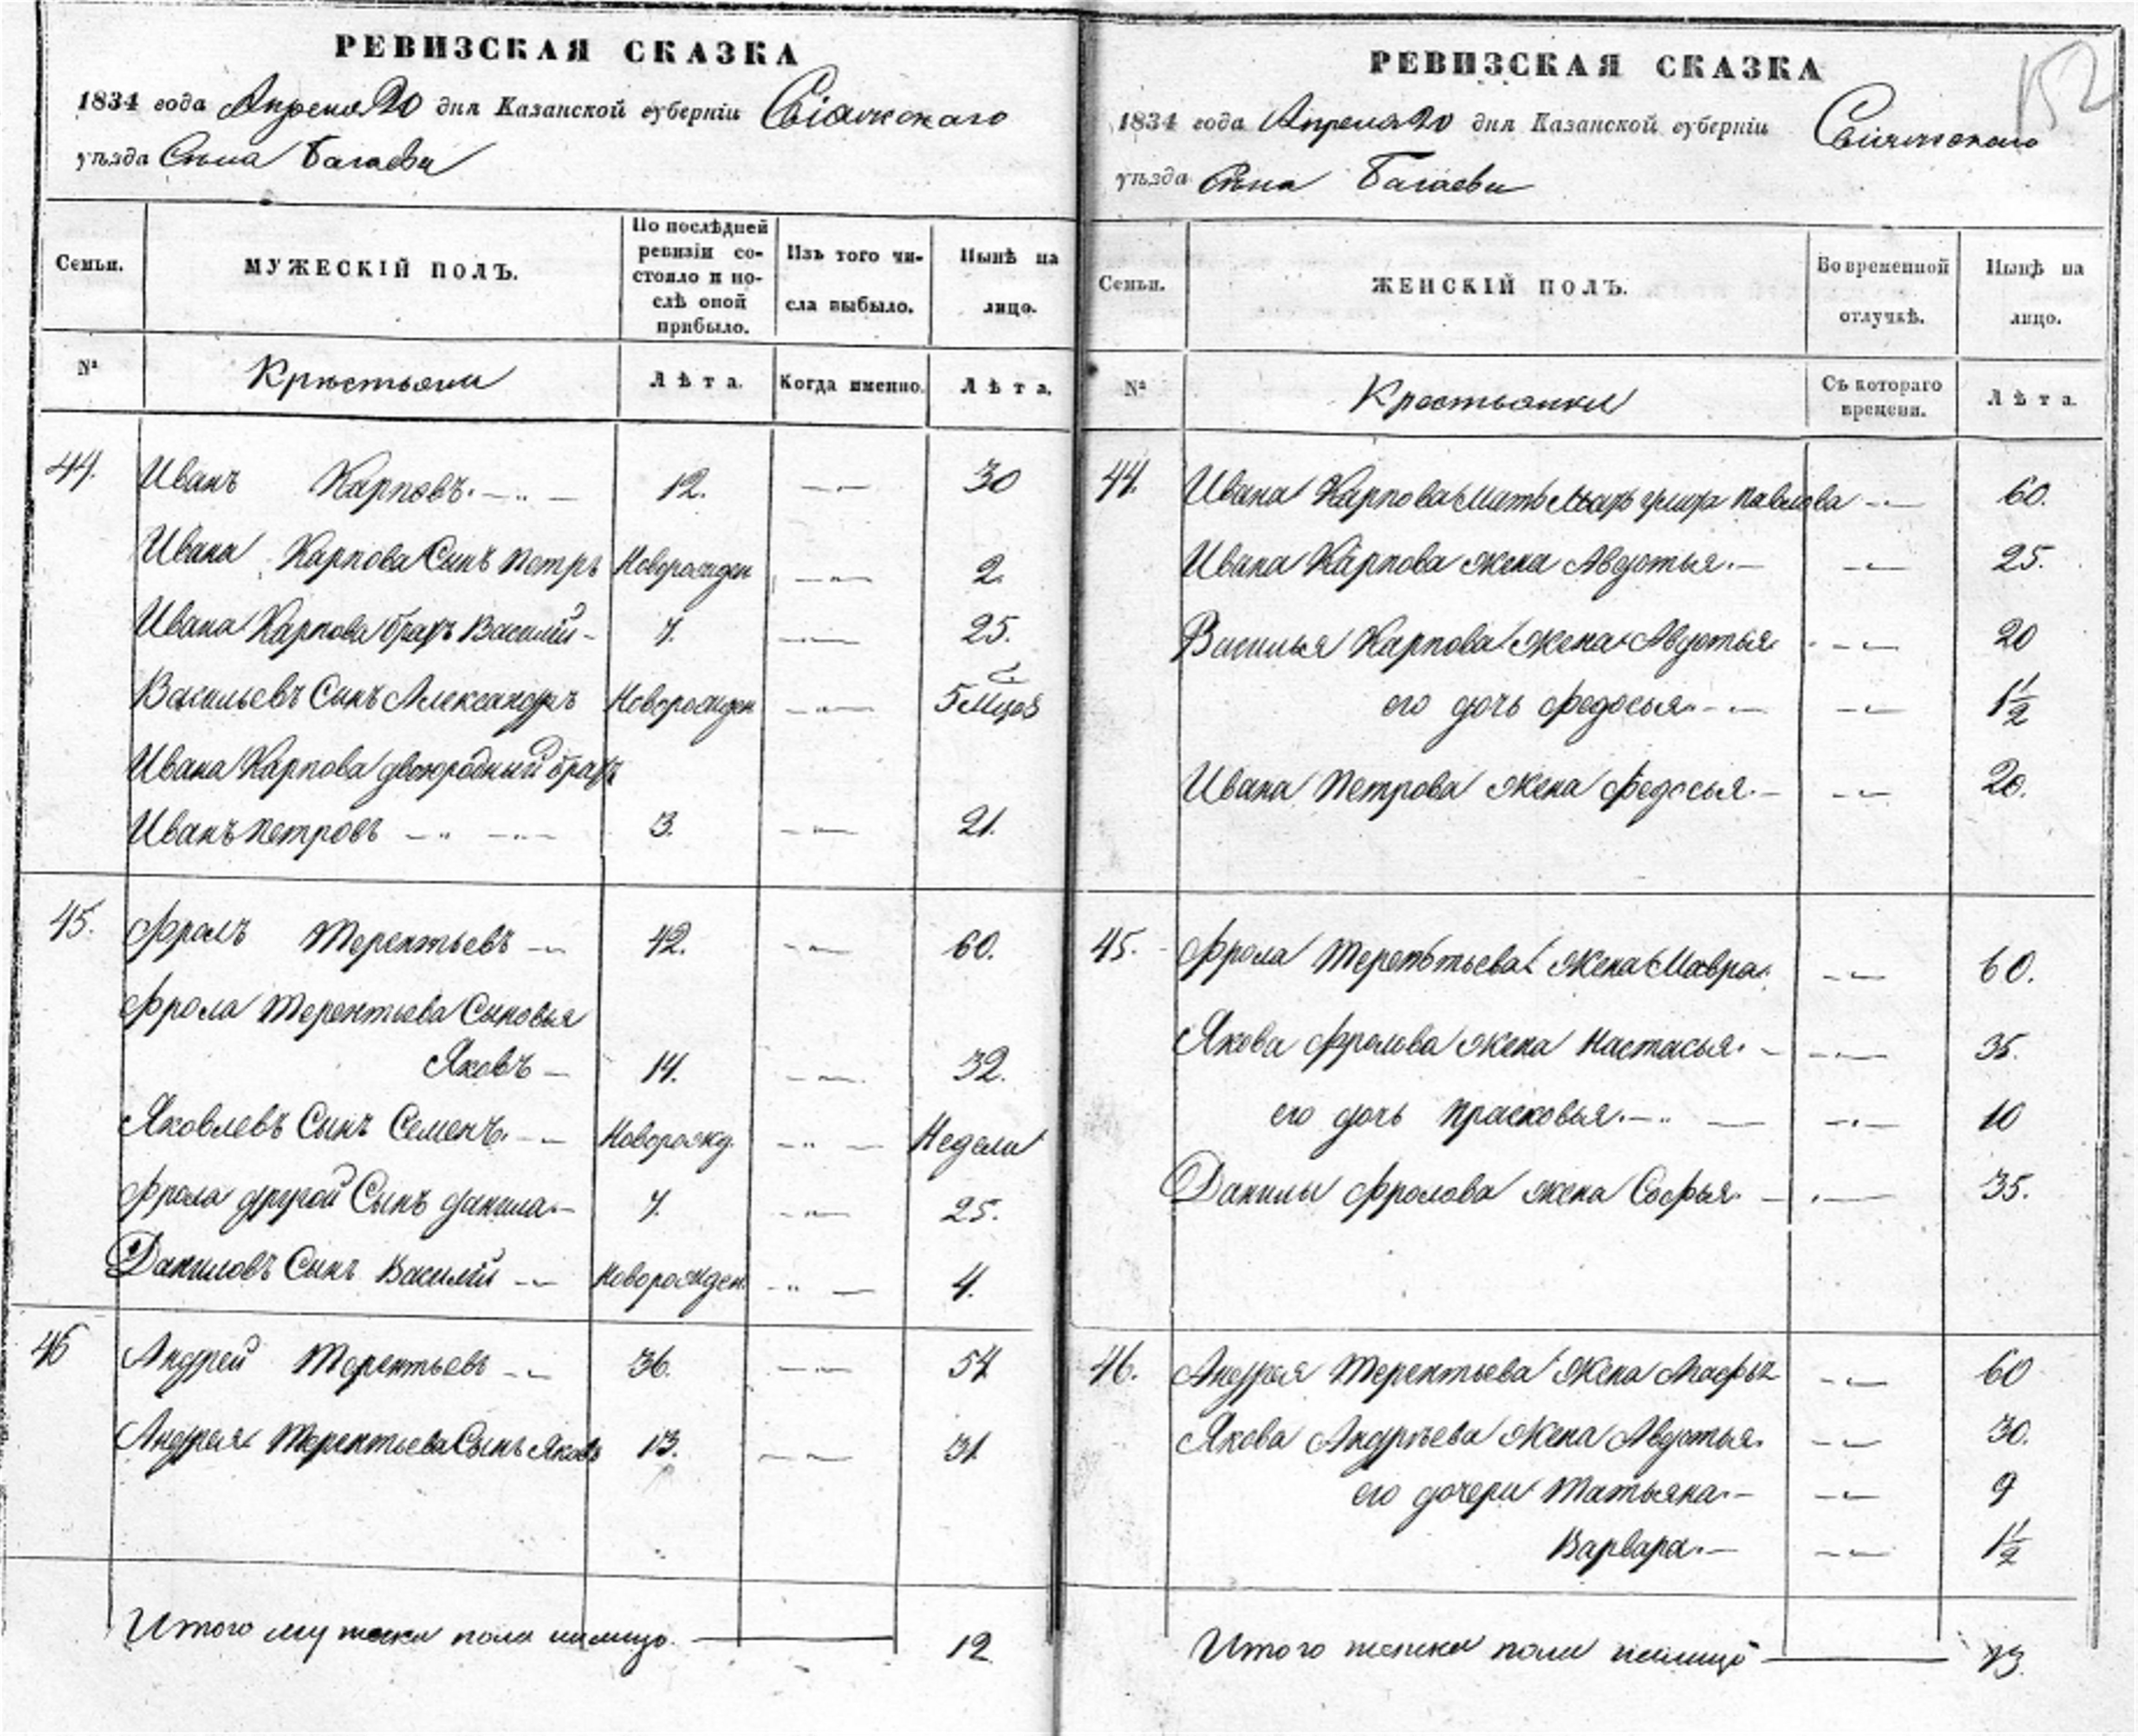 РЕВИЗСКАЯ СКАЗКА
1834 года Апреля 20 дня Казанской губерніи Свіяжскаго
уѣзда Села Багаева
Семьи.
МУЖЕСКІЙ ПОЛЪ.
По послѣдней ревизіи состояло и послѣ оной прибыло.
Изъ того числа выбыло.
Нынѣ на лицо.
№
Крестьяни
Лѣта.
Когда именно.
Лѣта.
44. Иванъ Карповъ. 12. 30
Ивана Карпова Сынъ Петръ Новорожден 2.
Ивана Карпова братъ Василий 7. 25.
Васильевъ Сынъ Александръ Новорожден 5 мцов
Ивана Карпова двоюродный братъ
Иванъ Петровъ 3. 21.
45. Фролъ Терентьевъ 42. 60.
Фрола Терентьева Сыновья
Яковъ 14. 32.
Яковлевъ Сынъ Семенъ. Новорожд. Недели
Фрола другой Сынъ Данила. 7. 25.
Даниловъ Сынъ Василий Новорожден. 4.
46 Андрей Терентьевъ 36. 54
Андрея Терентьева Сынъ Яковъ 13. 31
Итого мужска пола налицо. 12
РЕВИЗСКАЯ СКАЗКА
152
1834 года Апреля 20 дня Казанской губерніи Свіяжскаго
уѣзда Села Багаева
Семьи.
ЖЕНСКІЙ ПОЛЪ.
Во временной отлучкѣ.
Нынѣ на лицо.
№
Крестьянки
Съ котораго времени.
Лѣта.
44. Ивана Карпова мать Павлова 60.
Ивана Карпова жена Авдотья. 25.
Василья Карпова жена Авдотья 20
его дочь Федосья. 1½
Ивана Петрова жена Федосья. 20.
45. Фрола Терентьева жена Мавра. 60.
Якова Фролова жена Настасья. 35.
его дочь Прасковья. 10
Данилы Фролова жена Софья. 35.
46. Андрея Терентьева жена 60
Якова Андрѣева жена Авдотья. 30.
его дочери Татьяна. 9
Варвара. 1½
Итого женска пола налицо 13.